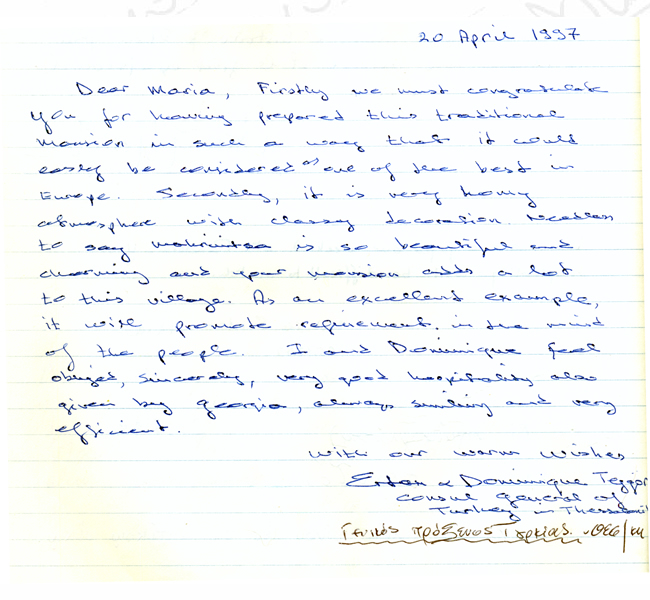 20 April 1997
Dear Maria, Firstly we must congratulate
you for having prepared this traditional
mansion in such a way that it could
easly be considered as one of the best in
Europe. Secondly, it is very homy
atmosphere with classy decoration. Needless
to say makrinitsa is so beautiful and
charming and your mansion adds a lot
to this village. As an excellent example,
it will promote refinement in the mind
of the people. I and Dominique feel
obliged, sincerely, very good hospitality also
given by Georgia, always smiling and very
efficient.
With our warm wishes
Ertan & Dominique
Consul General of
Turkey in Thessaloniki
Γενικός πρόξενος Τουρκίας